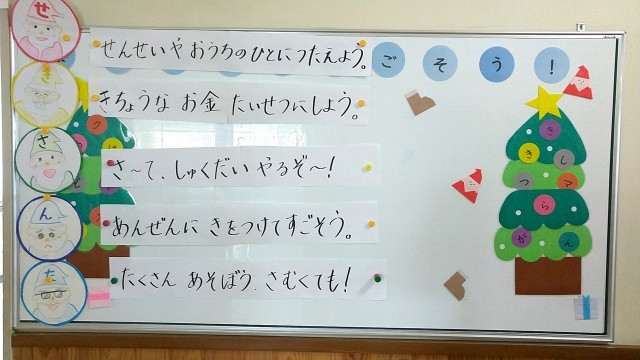 せ せんせいや おうちのひとにつたえよう。
き きちょうな お金 たいせつにしよう。
さ さ～て、しゅくだい やるぞ～！
ん あんぜんに きをつけてすごそう。
た たくさん あそぼう、さむくても！
ごそう！
き
き し
つ マ
ら
が ん